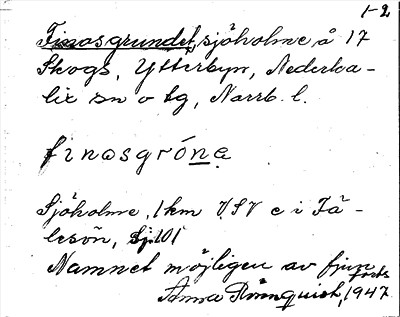 1-2
Finasgrundet, sjöholme å 17
Skogs, Ytterbyn, Nederka-
lix sn o tg, Norrb. l.
finasgróna
Sjöholme, 1 km VSV e i Få-
lesön, Sj.101
Namnet möjligen av finn
Anna Rönnquist, 1947